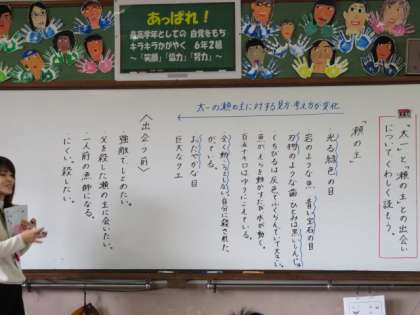 あっぱれ！
最高学年としての 自覚をもち
キラキラかがやく 6年2組
～「笑顔」「協力」「努力」～
太一の瀬の主に対する見方・考え方が変化
「太一」と、「瀬の主」との出会い
についてくわしく読もう。
「瀬の主」
光る緑色の目
岩のような魚 青い宝石の目
刃物のような歯 ひとみは黒いしんじゅ
くちびるは灰色でふくらんでいて大きい
魚がえらを動かすたび水が動く。
百五十キロはゆうにこえている。
全く動こうとしない。自分に殺されたがっている。
おだやかな目
巨大なクエ
〈出会う前〉
強敵でしとめたい。
父を殺した瀬の主に会いたい。
一人前の漁師になる。
にくい。殺したい。